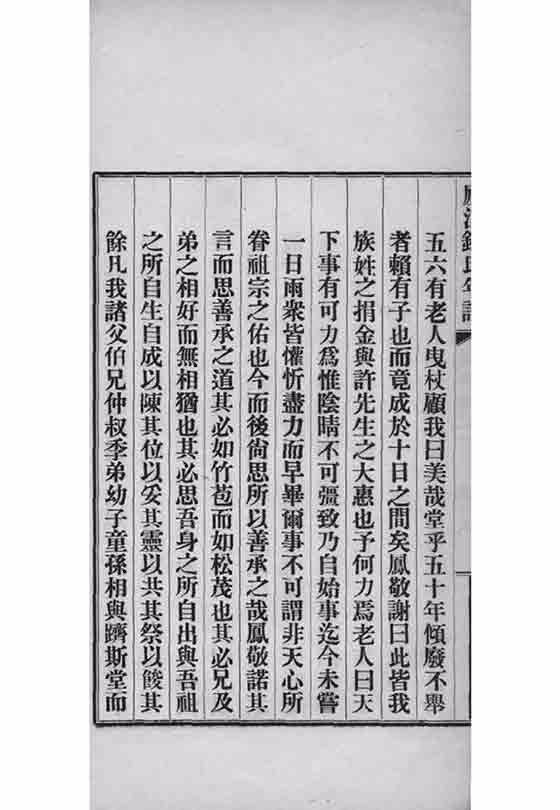 五六有老人曳杖顧我曰美哉堂乎五十年傾廢不舉
者賴有子也而竟成於十日之間矣鳳敬謝曰此皆我
族姓之捐金與許先生之大惠也予何力焉老人曰天
下事有可力爲惟陰晴不可彊致乃自始事迄今未嘗
一日雨衆皆懽忻盡力而早畢爾事不可謂非天心所
眷祖宗之佑也今而後尙思所以善承之哉鳳敬諾其
言而思善承之道其必如竹苞而如松茂也其必兄及
弟之相好而無相猶也其必思吾身之所自出與吾祖
之所自生自成以陳其位以安其靈以共其祭以餕其
餘凡我諸父伯兄仲叔季弟幼子童孫相與躋斯堂而